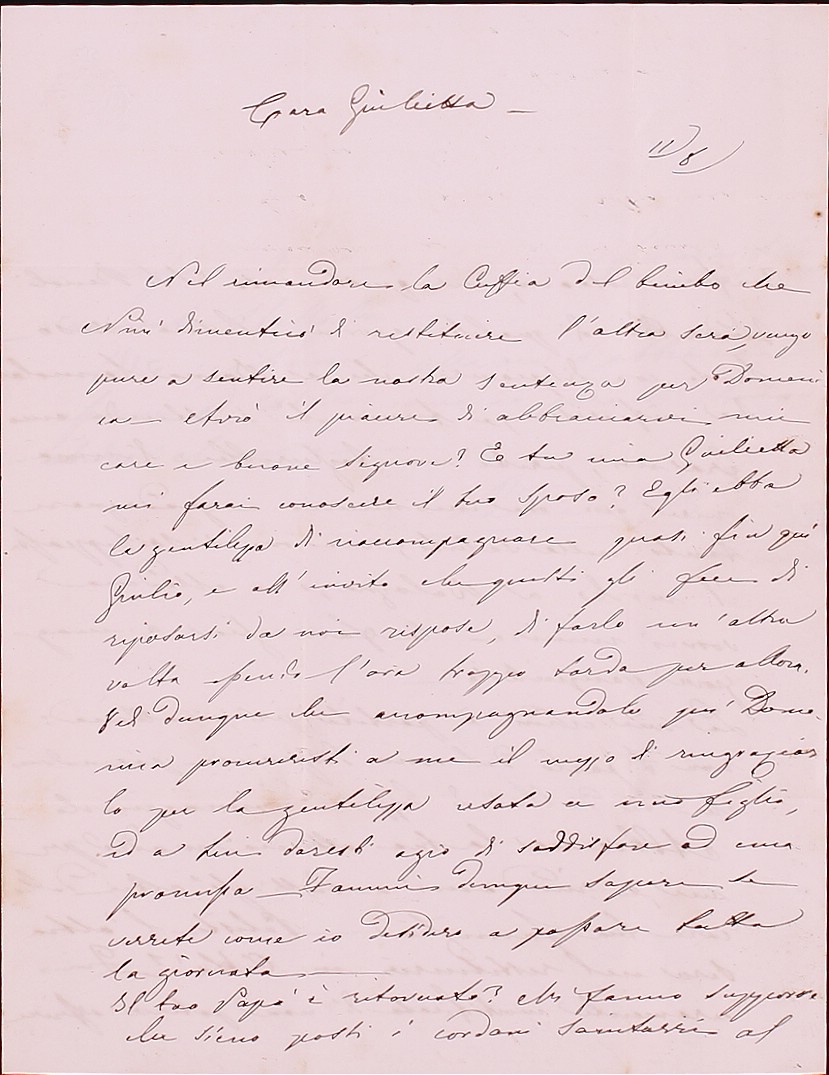 Cara Giulietta –
11/8
Nel rimandare la Cuffia del bimbo che
Ninì dimenticò di restituire l'altra sera, vengo
pure a sentire la vostra sentenza per Domeni
ca – Avrò il piacere di abbracciarvi mie
care e buone Signore? E tu mia Giulietta
mi farai conoscere il tuo sposo? Egli ebbe
la gentilezza di riaccompagnare quasi fin quì
Giulio, e all'invito che questi gli fece di
riposarsi da noi rispose, di farlo un'altra
volta essendo l'ora troppo tarda per allora.
Vedi dunque che accompagnandolo per Dome-
nica procureresti a me il mezzo di ringraziar
lo per la gentilezza usata a mio figlio,
ed a lui daresti agio di soddisfare ad una
promessa – Fammi dunque sapere se
verrete come io desidero a passare tutta
la giornata –
Il tuo Papà è ritornato? Mi fanno supporre
che sieno posti i cordoni sanitarii al